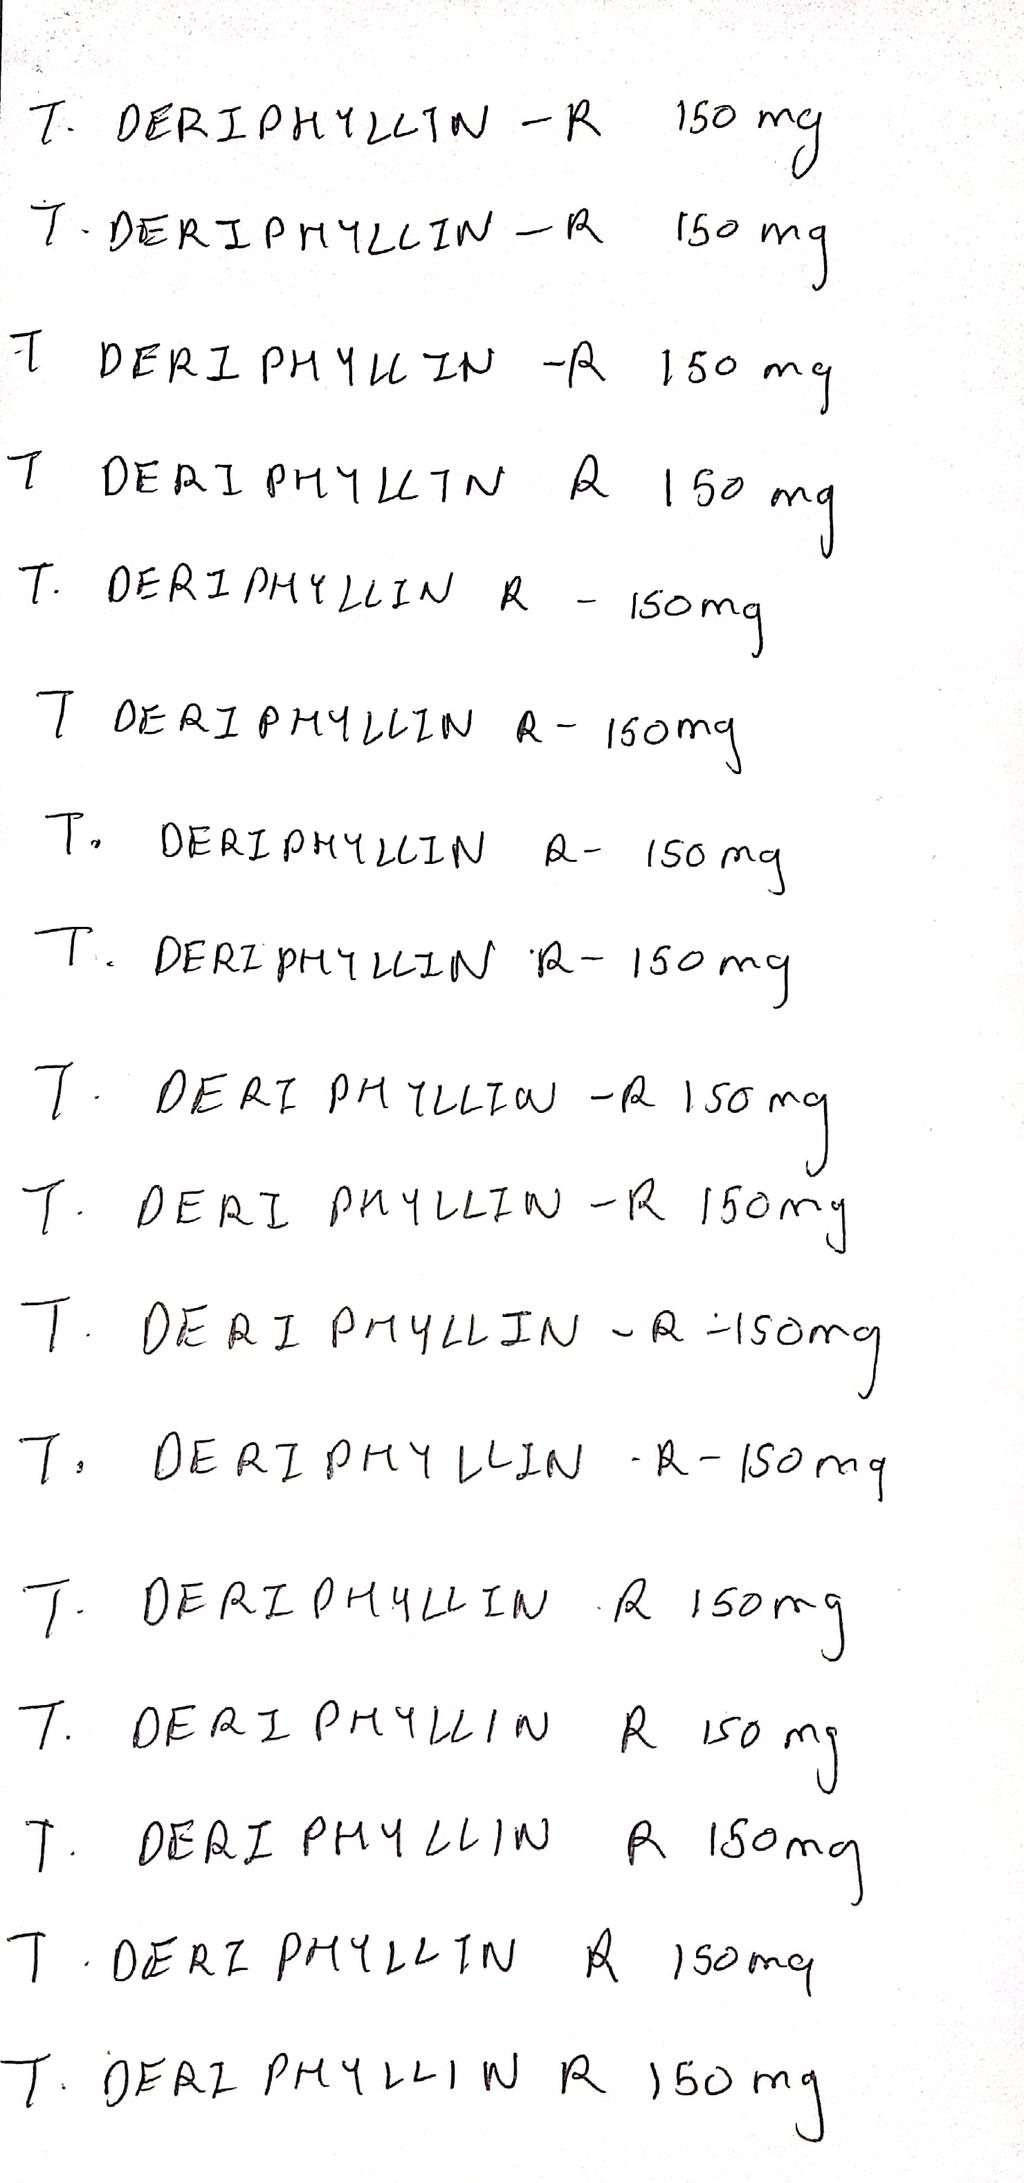 T. DERIPHYLLIN -R 150 mg
T. DERIPHYLLIN -R 150 mg
T DERIPHYLLIN -R 150 mg
T DERIPHYLLIN R 150 mg
T. DERIPHYLLIN R - 150mg
T DERIPHYLLIN R- 150mg
T. DERIPHYLLIN R- 150 mg
T. DERIPHYLLIN R- 150 mg
T. DERI PHYLLIN -R 150 mg
T. DERI PHYLLIN -R 150mg
T. DERI PHYLLIN -R -150mg
T. DERI PHYLLIN -R- 150 mg
T. DERIPHYLLIN R 150mg
T. DERI PHYLLIN R 150 mg
T. DERI PHYLLIN R 150mg
T. DERI PHYLLIN R 150mg
T. DERI PHYLLIN R 150 mg